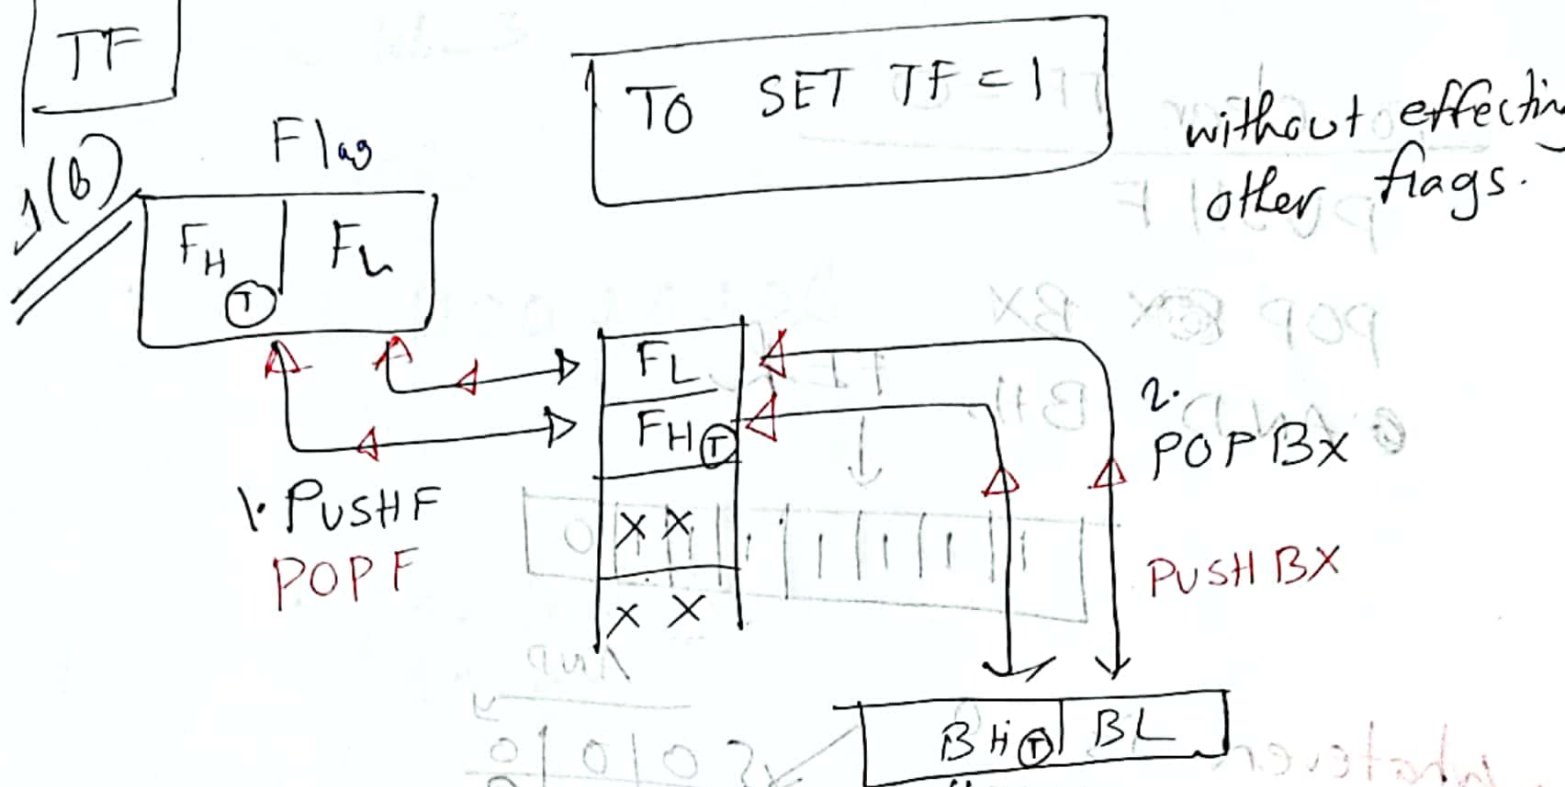 TF
TO SET TF = 1
without effectin
other flags.
1(b)
Flag
FH FL
T
FL
FH T
X X
X X
1. PUSHF
POPF
2.
POP BX
PUSH BX
BH T BL